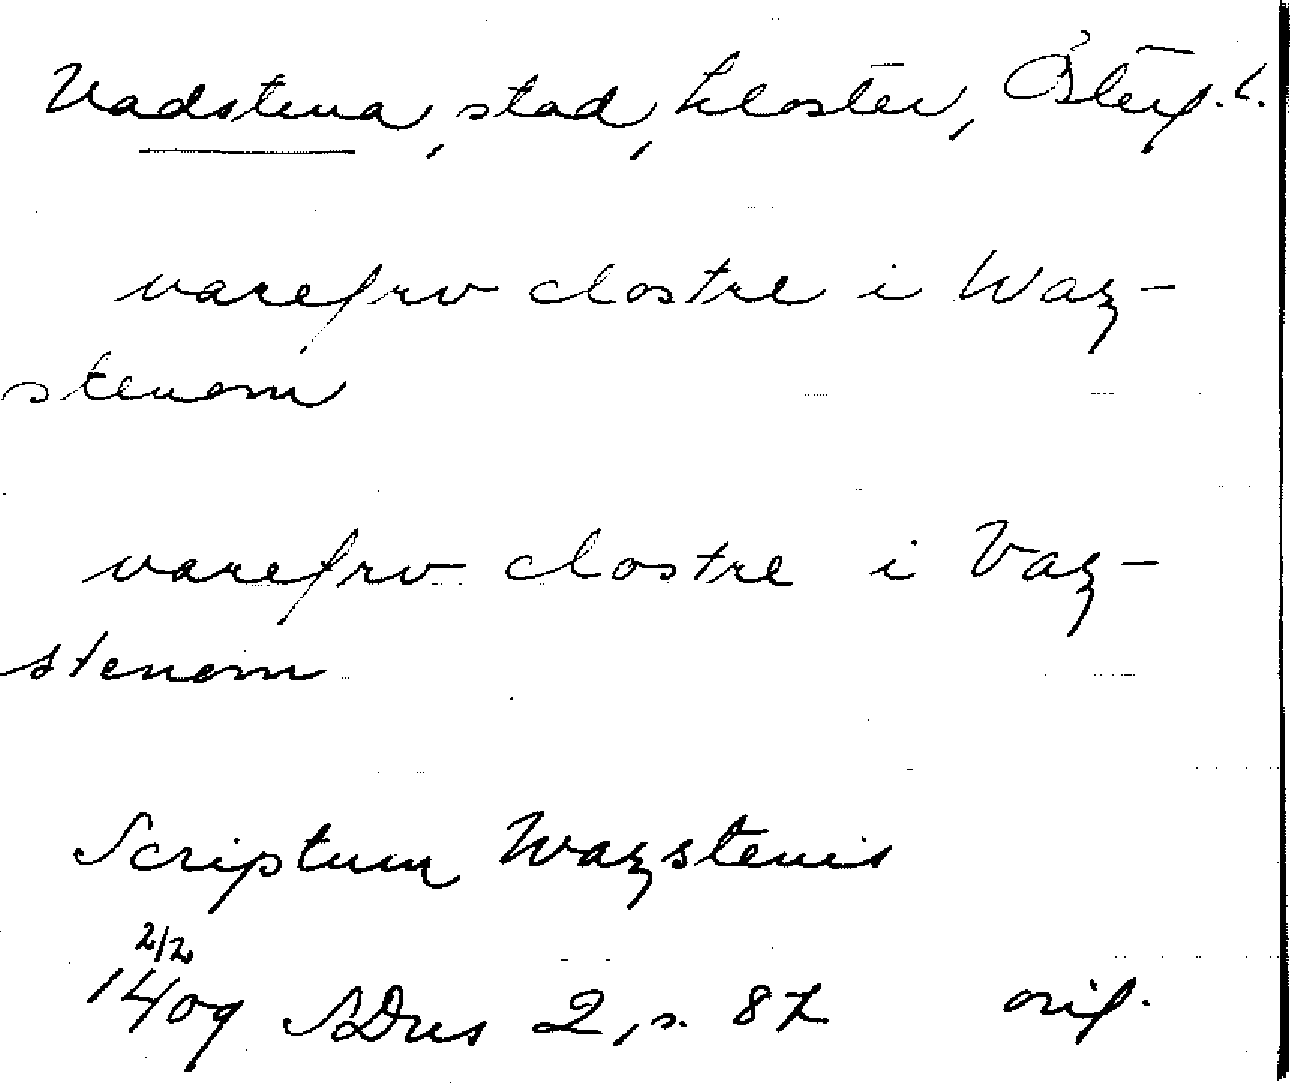 Vadstena, stad, kloster, Östergl.
varefrv clostre i Waz-
stenom
varefrv clostre i Vaz-
stenom
Scriptum Wazstenis
2/2
1409 SDns 2, s. 87 orig.